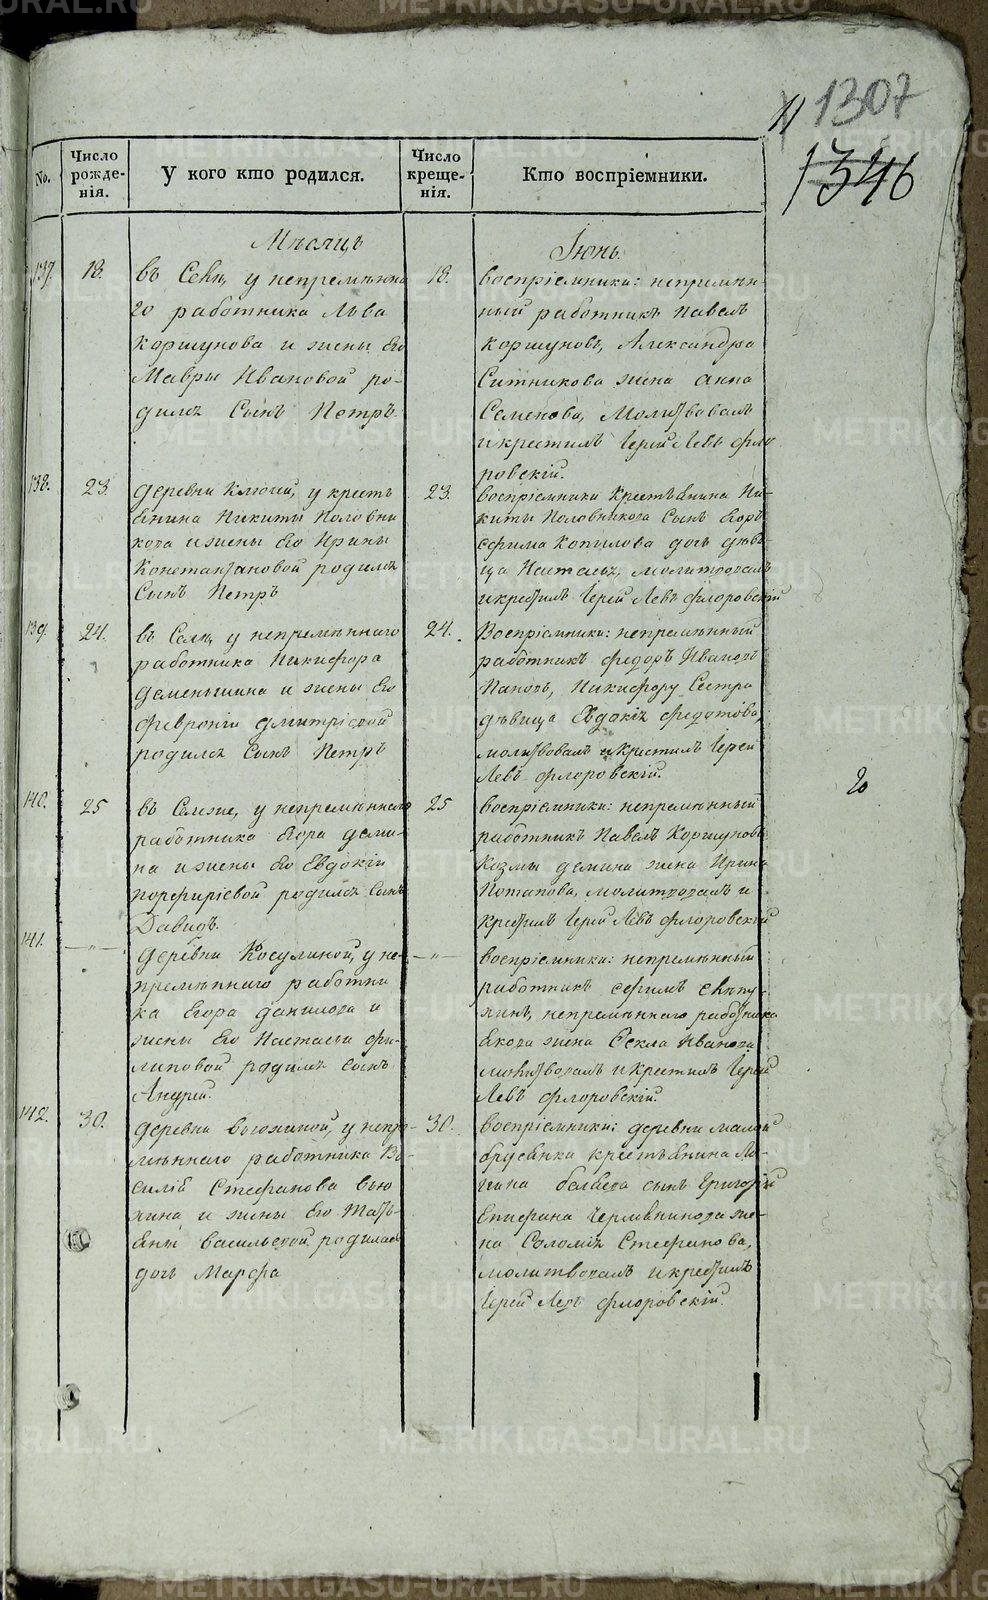 1307
1346
No.
Число рожде-нія.
У кого кто родился.
Число креще-нія.
Кто воспріемники.
Мѣсяцъ
Іюнь.
137.
18.
въ Селѣ, у непремѣнна
го работника Льва
Коршунова и жены его
Мавры Ивановой ро-
дился Сынъ Петръ
18.
воспріемники: непремѣн-
ный работникъ Павелъ
Коршуновъ, Александра
Ситникова жена Анна
Семенова, Молитвовалъ
и крестилъ Іерей Левъ Фло
ровскій.
138.
23.
деревни Ключей, у кресть
янина Никиты Половни
кова и жены его Ирины
Константиновой родился
Сынъ Петръ
23.
воспріемники Крестьянина Ни-
киты Половникова Сынъ Егоръ
Ефима Копылова дочь дѣви-
ца Настасья, молитвовалъ
и крестилъ Іерей Левъ Флоровскій
139.
24.
въ Селѣ, у непремѣннаго
работника Никифора
Деменьшина и жены его
Февроніи Дмитріевой
родился Сынъ Петръ
24.
Воспріемники: непремѣнный
работникъ Федоръ Ивановъ
Поповъ, Никифору Сестра
дѣвица Евдокія Федотова,
молитвовалъ и крестилъ Іерей
Левъ Флоровскій.
140.
25
въ Селѣ же, у непремѣннаго
работника Егора Деми-
на и жены его Евдокіи
Порфиріевой родился Сынъ
Давидъ.
25
воспріемники: непремѣнный
работникъ Павелъ Коршуновъ
Козмы Демина жена Ирина
Потапова, молитвовалъ и
крестилъ Іерей Левъ Флоровскій
20
141.
— „ —
деревни Косулиной, у не-
премѣннаго работни
ка Егора Данилова и
жены его Настасьи Фи-
липовой родился сынъ
Андрей.
— „ —
воспріемники: непремѣнный
работникъ Ефимъ
непремѣннаго работника
Якова жена Фекла Иванова
молитвовалъ и крестилъ Іерей
Левъ Флоровскій.
142.
30.
деревни Вьюхиной, у непре-
мѣннаго работника Ва-
силія Стефанова Вью
хина и жены его Тать-
яны Васильевой родилась
дочь Марфа
30.
воспріемники: деревни малой
брусянка крестьянина Ло-
гина сынъ Григорій
Епифана жe-
на Соломія Стефанова,
молитвовалъ и крестилъ
Іерей Левъ Флоровскій.
METRIKI.GASO-URAL.RU